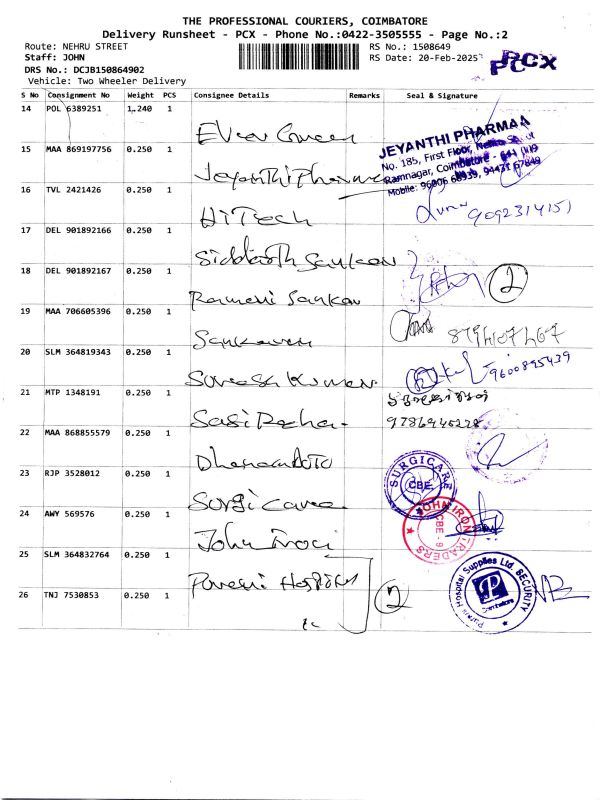 THE PROFESSIONAL COURIERS, COIMBATORE
Delivery Runsheet - PCX - Phone No.:0422-3505555 - Page No.:2
Route: NEHRU STREET
RS No.: 1508649
Staff: JOHN
RS Date: 20-Feb-2025
PCX
DRS No.: DCJB150864902
Vehicle: Two Wheeler Delivery
S No Consignment No Weight PCS Consignee Details Remarks Seal & Signature
14 POL 6389251 1.240 1
15 MAA 869197756 0.250 1 Jeyanthi Pharma
JEYANTHI PHARMAA
No. 185, First Floor, Nehru Street
Ramnagar, Coimbatore - 641 009
Mobile: 96006 68939, 94431 67849
16 TVL 2421426 0.250 1 HiTech
9092314151
17 DEL 901892166 0.250 1 Siddarth Sankar
18 DEL 901892167 0.250 1 Ramani Sankar
2
19 MAA 706605396 0.250 1
20 SLM 364819343 0.250 1 Suresh Kumar
9600895439
21 MTP 1348191 0.250 1
22 MAA 868855579 0.250 1
23 RJP 3528012 0.250 1 Surgicare
SURGICARE
CBE.
24 AWY 569576 0.250 1 John Iron
JOHN IRON TRADERS
CBE - 9
25 SLM 364832764 0.250 1 Pavani Hospital
Hospital Supplies Ltd. SECURITY
P
Coimbatore
26 TNJ 7530853 0.250 1
2